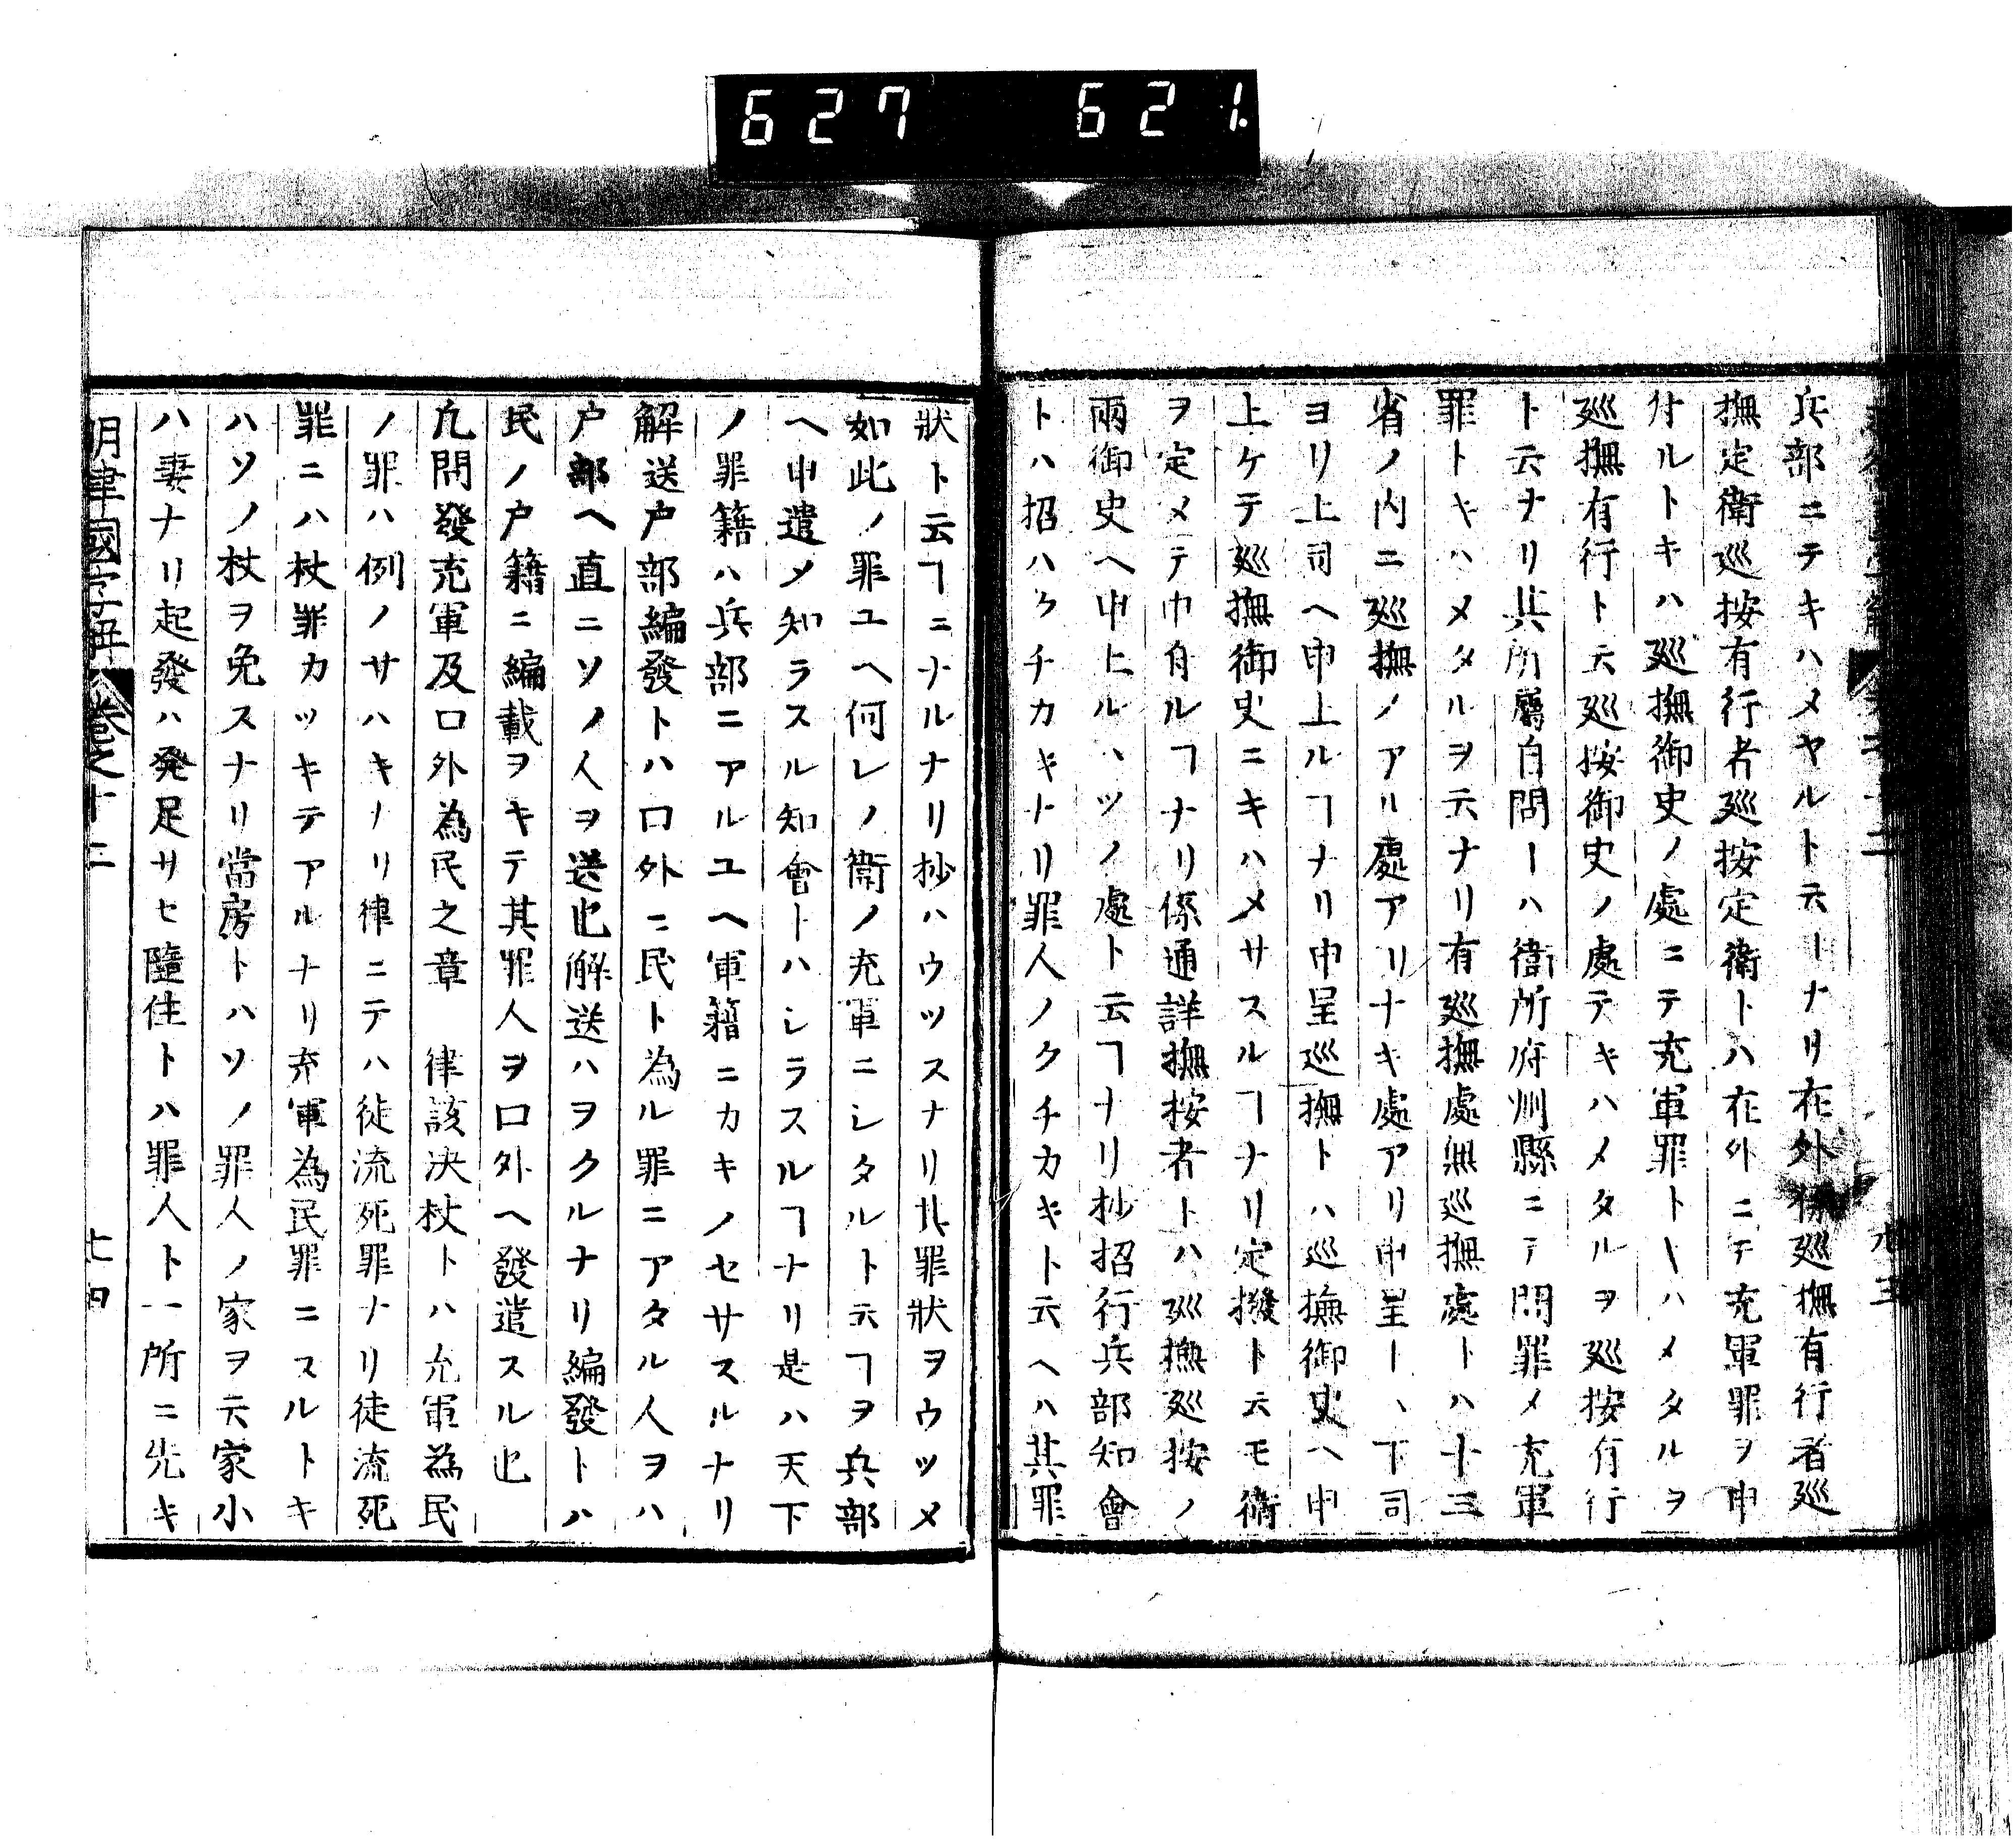 627 621.
兵部ニテキハメヤルト云ーナリ在外係巡撫有行者巡
撫定衛巡按有行者巡按定衛トハ在外ニテ充軍罪ヲ申
付ルトキハ巡撫御史ノ處ニテ充軍罪トキハメタルヲ
巡撫有行ト云巡按御史ノ處テキハメタルヲ巡按有行
ト云ナリ其所屬自問ーハ衛所府州縣ニテ問罪メ充軍
罪トキハメタルヲ云ナリ有巡撫處無巡撫處トハ十三
省ノ内ニ巡撫ノアル處アリナキ處アリ申呈ー、下司
ヨリ上司ヘ申上ルヿナリ申呈巡撫トハ巡撫御史ヘ申
上ケテ巡撫御史ニキハメサスルヿナリ定撥ト云モ衛
ヲ定メテ申付ルヿナリ係通詳撫按者トハ巡撫巡按ノ
兩御史ヘ申上ル、ソノ處ト云ヿナリ抄招行兵部知會
トハ招ハクチカキナリ罪人ノクチカキト云ヘハ其罪
狀ト云ヿニナルナリ抄ハウツスナリ其罪狀ヲウツメ
如此ノ罪ユヘ何レノ衛ノ充軍ニシタルト云ヿヲ兵部
ヘ申遣メ知ラスル知會トハシラスルヿナリ是ハ天下
ノ罪籍ハ兵部ニアルユヘ軍籍ニカキノセサスルナリ
解送户部編發トハ口外ニ民ト為ル罪ニアタル人ヲハ
户部ヘ直ニソノ人ヲ送也解送ハヲクルナリ編發トハ
民ノ户籍ニ編載ヲキテ其罪人ヲ口外ヘ發遣スル也
凢問發充軍及口外為民之章　律該决杖トハ充軍為民
ノ罪ハ例ノサハキナリ律ニテハ徒流死罪ナリ徒流死
罪ニハ杖罪カツキテアルナリ充軍為民罪ニスルトキ
ハソノ杖ヲ免スナリ當房トハソノ罪人ノ家ヲ云家小
ハ妻ナリ起發ハ発足サセ隨住トハ罪人ト一所ニ先キ
明律國字解　卷之十二　七四